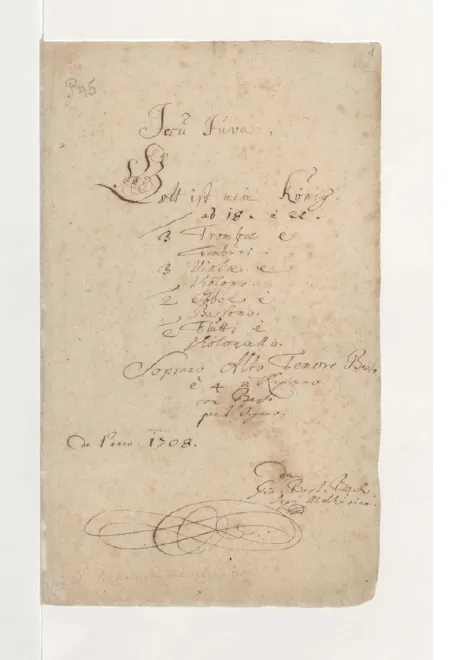 P 45
1
Jesu Juva.
Gott ist mein König.
ab 18. è 22.
3 Trombe è
Tamburi.
3 Violæ è
Violono.
2 Obboe è
Bassono.
2 Flutti è
Violoncello.
Soprano Alto Tenore Basso
è 4 in Ripieno
con Basso
per l'Organo.
de l'anno 1708.
da
Gio. Bast. Bach
Molhusino.